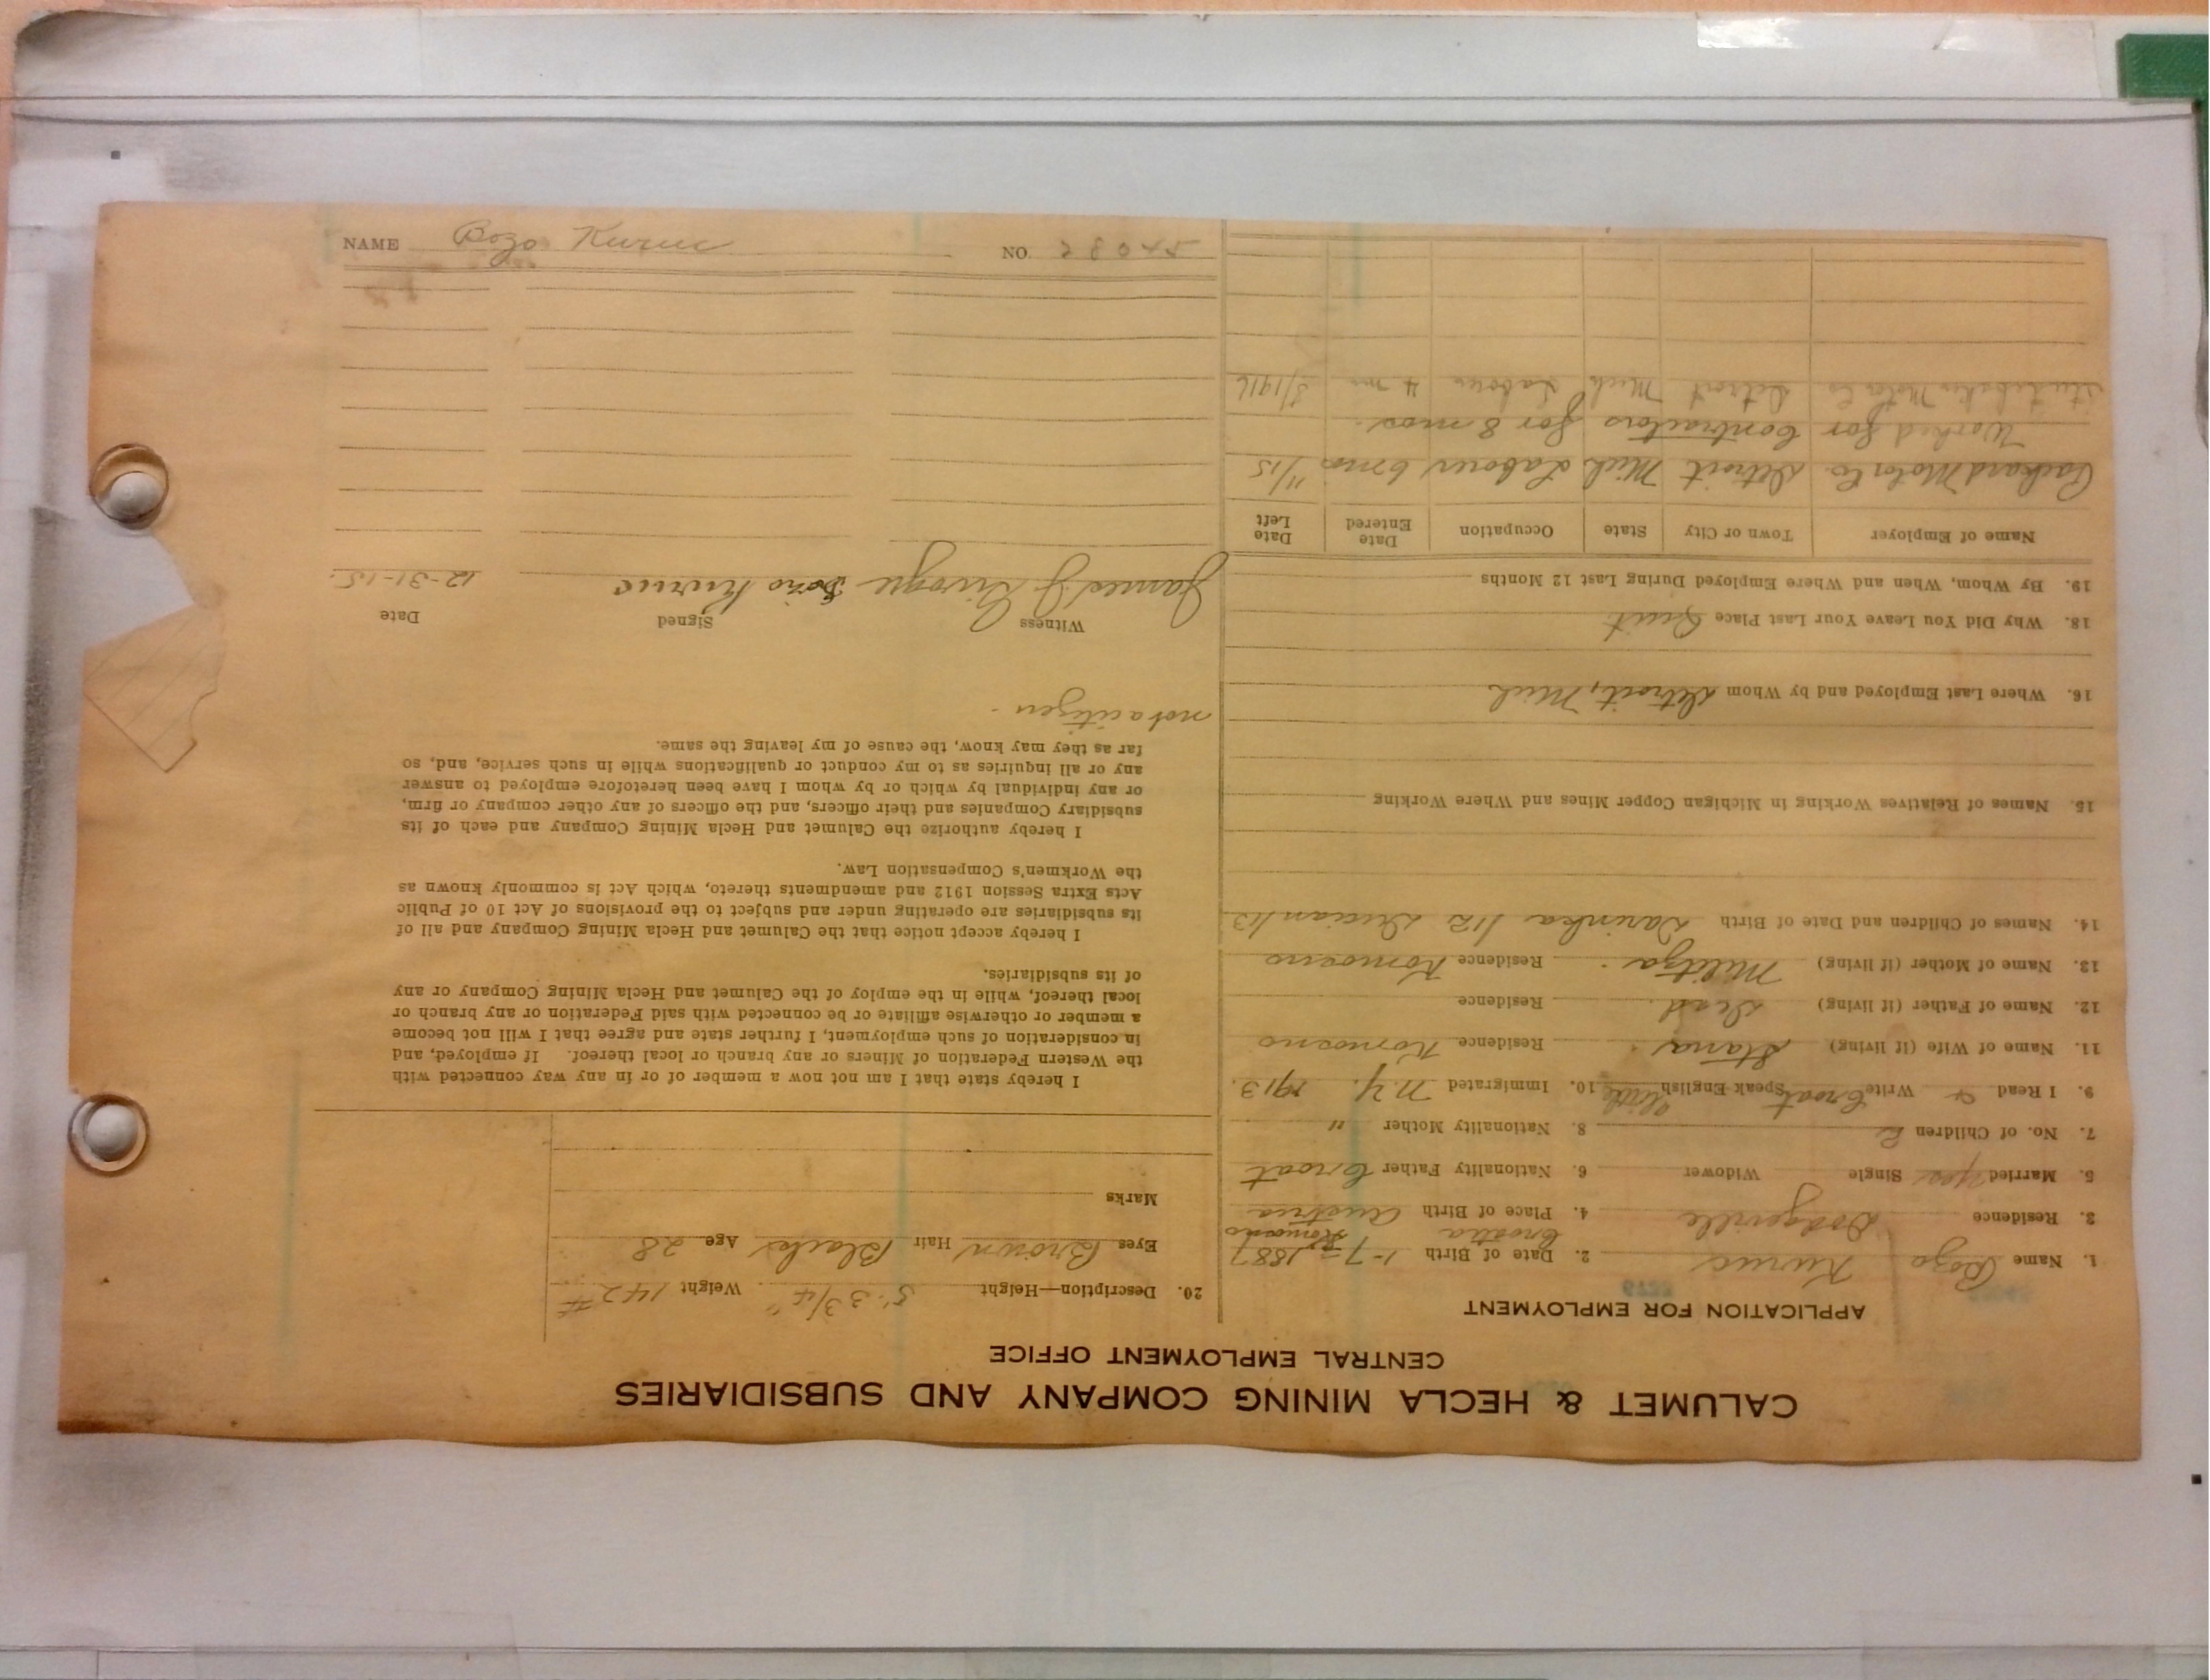 CALUMET & HECLA MINING COMPANY AND SUBSIDIARIES
CENTRAL EMPLOYMENT OFFICE
APPLICATION FOR EMPLOYMENT
1. Name Bozo Kuruc 2. Date of Birth 1-7-1887
Croatia
3. Residence Dodgeville 4. Place of Birth Austria
5. Married yes Single Widower 6. Nationality Father Croat
7. No. of Children 2 8. Nationality Mother "
9. I Read & Write Croat Speak English little 10. Immigrated N.Y. 1913.
11. Name of Wife (if living) Stana Residence Komocno
12. Name of Father (if living) Dead. Residence
13. Name of Mother (if living) Militza Residence Komocno
14. Names of Children and Date of Birth Darinka 1/12 Lucian 1/13
15. Names of Relatives Working in Michigan Copper Mines and Where Working
16. Where Last Employed and by Whom Detroit, Mich
18. Why Did You Leave Your Last Place Quit
19. By Whom, When and Where Employed During Last 12 Months
Name of Employer Town or City State Occupation Date Entered Date Left
Packard Motor Co. Detroit Mich Laborer 6 mos 11/15
Worked for Contractors for 8 mos.
Studebaker Motor Co Detroit Mich Laborer 4 m 3/1916
20. Description—Height 5'-3 3/4" Weight 142#
Eyes Brown Hair Black Age 28
Marks
I hereby state that I am not now a member of or in any way connected with
the Western Federation of Miners or any branch or local thereof. If employed, and
in consideration of such employment, I further state and agree that I will not become
a member or otherwise affiliate or be connected with said Federation or any branch or
local thereof, while in the employ of the Calumet and Hecla Mining Company or any
of its subsidiaries.
I hereby accept notice that the Calumet and Hecla Mining Company and all of
its subsidiaries are operating under and subject to the provisions of Act 10 of Public
Acts Extra Session 1912 and amendments thereto, which Act is commonly known as
the Workmen's Compensation Law.
I hereby authorize the Calumet and Hecla Mining Company and each of its
subsidiary Companies and their officers, and the officers of any other company or firm,
or any individual by which or by whom I have been heretofore employed to answer
any or all inquiries as to my conduct or qualifications while in such service, and, so
far as they may know, the cause of my leaving the same.
not a citizen.
Witness Signed Date
James J. Kuruc 12-31-15.
NAME Bozo Kuruc NO.